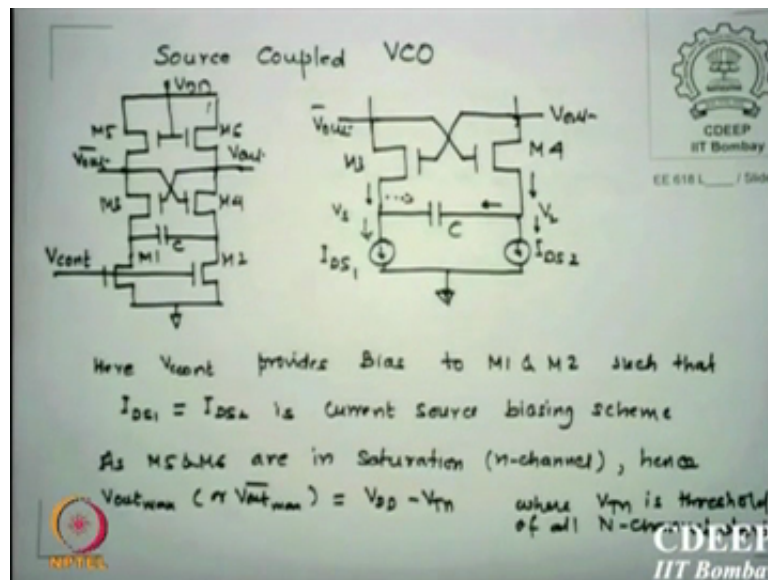 Source Coupled VCO
VDD
M5
M6
Vout
Vout
M3
M4
C
Vcont
M1
M2
Vout
Vout
M3
M4
V1
V2
C
IDS1
IDS2
CDEEP
IIT Bombay
EE 618 L____ / Slide
Here Vcont provides Bias to M1 & M2 such that
IDS1 = IDS2 is current source biasing scheme
As M5 & M6 are in Saturation (n-channel), hence
Voutmax (or Voutmax) = VDD - VTn where VTn is threshold
of all N-channel
NPTEL
CDEEP
IIT Bombay